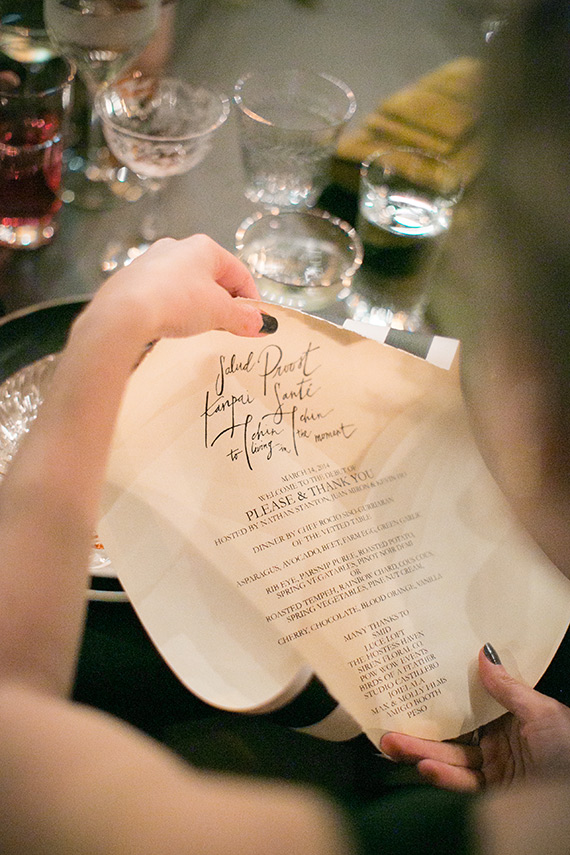 Salud Proost
Kanpai Santé
Tchin Tchin
to living in the moment
MARCH 14, 2014
WELCOME TO THE DEBUT OF
PLEASE & THANK YOU
HOSTED BY NATHAN STANTON, JUAN MIRON & KEVIN HO
DINNER BY CHEF ROCIO
OF THE VETTED TABLE
ASPARAGUS, AVOCADO, BEET, FARM EGG, GREEN GARLIC
RIB EYE, PARSNIP PUREE, ROASTED POTATO,
SPRING VEGATABLES, PINOT NOIR DEMI
OR
ROASTED TEMPEH, RAINBOW CHARD, COUS COUS,
SPRING VEGETABLES, PINE NUT CREAM,
CHERRY, CHOCOLATE, BLOOD ORANGE, VANILLA
MANY THANKS TO
SMID
LUCE LOFT
THE HOSTESS HAVEN
SIREN FLORAL CO
POW WOW EVENTS
BIRDS OF A FEATHER
STUDIO CASTILLERO
MAX & MOLLY FILMS
AMIGO BOOTH
PESO